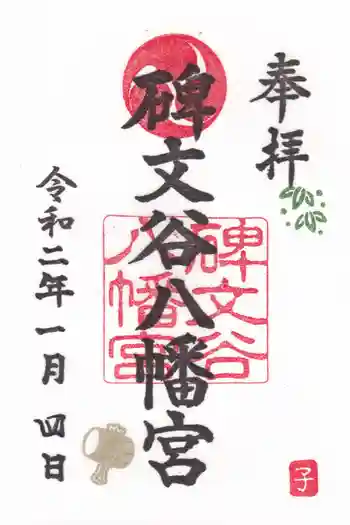 奉拝
碑文谷八幡宮
碑文谷
八幡宮
令和二年一月四日
子